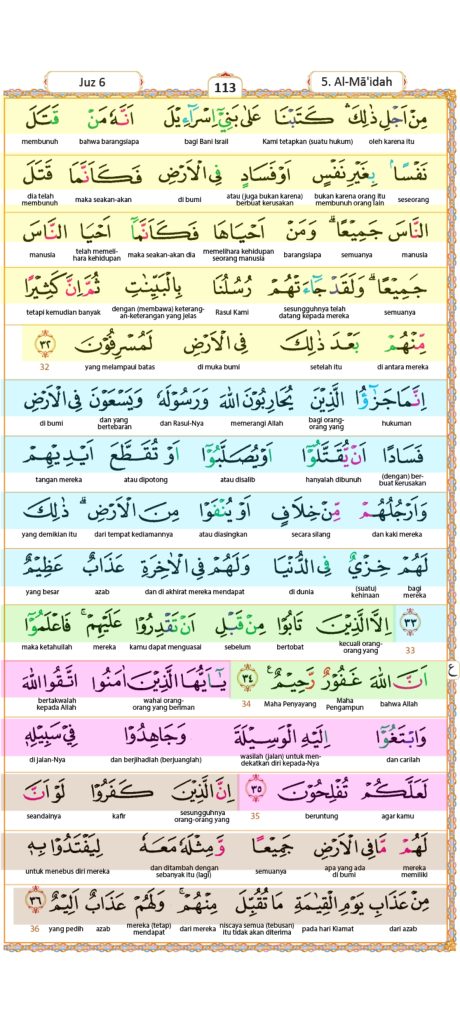 Juz 6 113 5. Al-Mā'idah
مِنْ اَجْلِ ذٰلِكَ ۛ كَتَبْنَا عَلٰى بَنِيْٓ اِسْرَاۤءِيْلَ اَنَّهٗ مَنْ قَتَلَ
oleh karena itu Kami tetapkan (suatu hukum) bagi Bani Israil bahwa barangsiapa membunuh
نَفْسًاۢ بِغَيْرِ نَفْسٍ اَوْ فَسَادٍ فِى الْاَرْضِ فَكَاَنَّمَا قَتَلَ
seseorang bukan karena orang itu membunuh orang lain atau (juga bukan karena) berbuat kerusakan di bumi maka seakan-akan dia telah membunuh
النَّاسَ جَمِيْعًاۗ وَمَنْ اَحْيَاهَا فَكَاَنَّمَآ اَحْيَا النَّاسَ
manusia semuanya barangsiapa memelihara kehidupan seorang manusia maka seakan-akan dia telah memeli-hara kehidupan manusia
جَمِيْعًاۗ وَلَقَدْ جَاۤءَتْهُمْ رُسُلُنَا بِالْبَيِّنٰتِ ثُمَّ اِنَّ كَثِيْرًا
semuanya sesungguhnya telah datang kepada mereka Rasul Kami dengan (membawa) keterang-an-keterangan yang jelas tetapi kemudian banyak
مِّنْهُمْ بَعْدَ ذٰلِكَ فِى الْاَرْضِ لَمُسْرِفُوْنَ ٣٢
di antara mereka setelah itu di muka bumi yang melampaui batas 32
اِنَّمَا جَزٰۤؤُا الَّذِيْنَ يُحَارِبُوْنَ اللّٰهَ وَرَسُوْلَهٗ وَيَسْعَوْنَ فِى الْاَرْضِ
hukuman bagi orang-orang yang memerangi Allah dan Rasul-Nya dan yang bertebaran di bumi
فَسَادًا اَنْ يُّقَتَّلُوْٓا اَوْ يُصَلَّبُوْٓا اَوْ تُقَطَّعَ اَيْدِيْهِمْ
(dengan) ber-buat kerusakan hanyalah dibunuh atau disalib atau dipotong tangan mereka
وَاَرْجُلُهُمْ مِّنْ خِلَافٍ اَوْ يُنْفَوْا مِنَ الْاَرْضِۗ ذٰلِكَ
dan kaki mereka secara silang atau diasingkan dari tempat kediamannya yang demikian itu
لَهُمْ خِزْيٌ فِى الدُّنْيَا وَلَهُمْ فِى الْاٰخِرَةِ عَذَابٌ عَظِيْمٌ
bagi mereka (suatu) kehinaan di dunia dan di akhirat mereka mendapat azab yang besar
٣٣ اِلَّا الَّذِيْنَ تَابُوْا مِنْ قَبْلِ اَنْ تَقْدِرُوْا عَلَيْهِمْۚ فَاعْلَمُوْٓا
33 kecuali orang-orang yang bertobat sebelum kamu dapat menguasai mereka maka ketahuilah
اَنَّ اللّٰهَ غَفُوْرٌ رَّحِيْمٌ ࣖ ٣٤ يٰٓاَيُّهَا الَّذِيْنَ اٰمَنُوا اتَّقُوا اللّٰهَ ع
bahwa Allah Maha Pengampun Maha Penyayang 34 wahai orang-orang yang beriman bertakwalah kepada Allah
وَابْتَغُوْٓا اِلَيْهِ الْوَسِيْلَةَ وَجَاهِدُوْا فِيْ سَبِيْلِهٖ
dan carilah wasilah (jalan) untuk men-dekatkan diri kepada-Nya dan berjihadlah (berjuanglah) di jalan-Nya
لَعَلَّكُمْ تُفْلِحُوْنَ ٣٥ اِنَّ الَّذِيْنَ كَفَرُوْا لَوْ اَنَّ
agar kamu beruntung 35 sesungguhnya orang-orang yang kafir seandainya
لَهُمْ مَّا فِى الْاَرْضِ جَمِيْعًا وَّمِثْلَهٗ مَعَهٗ لِيَفْتَدُوْا بِهٖ
mereka memiliki apa yang ada di bumi semuanya dan ditambah dengan sebanyak itu (lagi) untuk menebus diri mereka
مِنْ عَذَابِ يَوْمِ الْقِيٰمَةِ مَا تُقُبِّلَ مِنْهُمْۚ وَلَهُمْ عَذَابٌ اَلِيْمٌ ٣٦
dari azab pada hari Kiamat niscaya semua (tebusan) itu tidak akan diterima dari mereka mereka (tetap) mendapat azab yang pedih 36